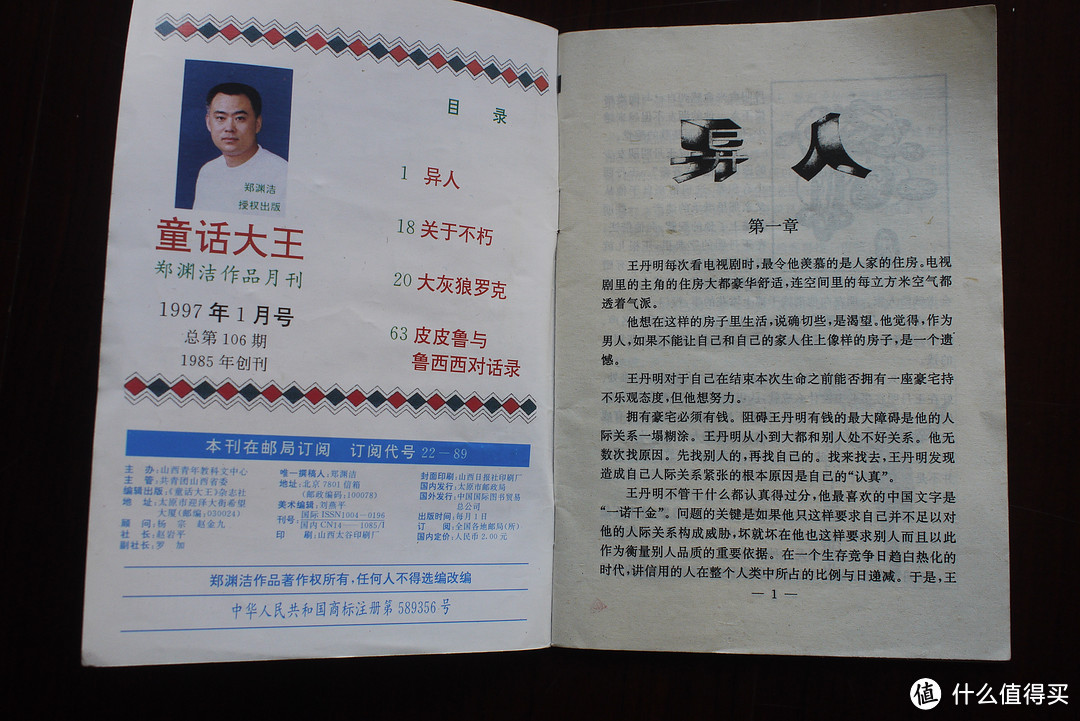 郑渊洁
授权出版
童话大王
郑渊洁作品月刊
1997年1月号
总第106期
1985年创刊
目 录
1 异人
18 关于不朽
20 大灰狼罗克
63 皮皮鲁与
鲁西西对话录
本刊在邮局订阅 订阅代号 22－89
主 办：山西青年教科文中心
主 管：共青团山西省委
编辑出版：《童话大王》杂志社
地 址：太原市迎泽大街希望
大厦（邮编：030024）
顾 问：杨 宗 赵金九
社 长：赵岩平
副社长：罗 加
唯一撰稿人：郑渊洁
地址：北京7801信箱
（邮政编码：100078）
美术编辑：刘燕平
刊号：国际ISSN1004－0196
国内CN14——1085/I
印 刷：山西太谷印刷厂
封面印刷：山西日报社印刷厂
国内发行：太原市邮政局
国外发行：中国国际图书贸易
总公司
出版时间：每月1日
订 阅：全国各地邮局（所）
国内定价：人民币2.00元
郑渊洁作品著作权所有，任何人不得选编改编
中华人民共和国商标注册第589356号
异人
第一章
王丹明每次看电视剧时，最令他羡慕的是人家的住房。电视
剧里的主角的住房大都豪华舒适，连空间里的每立方米空气都
透着气派。
他想在这样的房子里生活，说确切些，是渴望。他觉得，作为
男人，如果不能让自己和自己的家人住上像样的房子，是一个遗
憾。
王丹明对于自己在结束本次生命之前能否拥有一座豪宅持
不乐观态度，但他想努力。
拥有豪宅必须有钱。阻碍王丹明有钱的最大障碍是他的人
际关系一塌糊涂。王丹明从小到大都和别人处不好关系。他无
数次找原因。先找别人的，再找自己的。找来找去，王丹明发现
造成自己人际关系紧张的根本原因是自己的“认真”。
王丹明不管干什么都认真得过分，他最喜欢的中国文字是
“一诺千金”。问题的关键是如果他只这样要求自己并不足以对
他的人际关系构成威胁，坏就坏在他也这样要求别人而且以此
作为衡量别人品质的重要依据。在一个生存竞争日趋白热化的
时代，讲信用的人在整个人类中所占的比例与日递减。于是，王
— 1 —
值 什么值得买